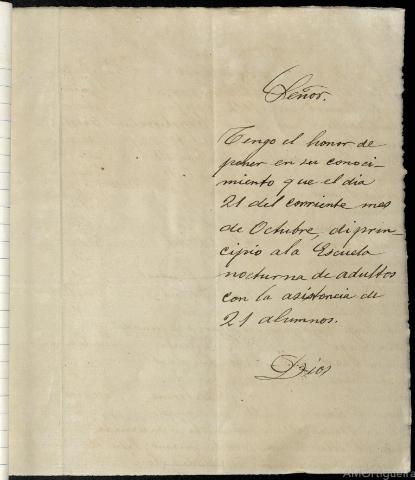 Señor.
Tengo el honor de
poner en su conoci-
miento que el dia
21 del corriente mes
de Octubre, di prin-
cipio a la Escuela
nocturna de adultos
con la asistencia de
21 alumnos.
Dios
AMOrtigueira